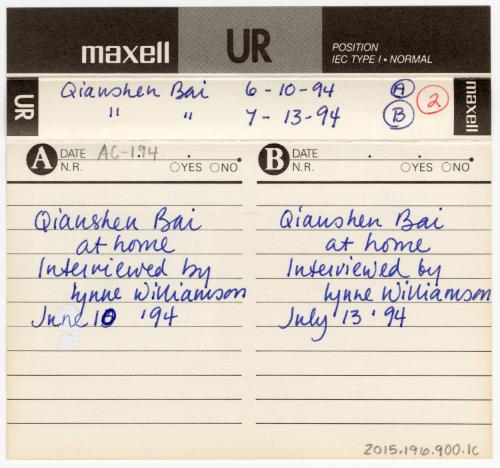 maxell UR POSITION
IEC TYPE I • NORMAL
UR Qianshen Bai 6-10-94 A 2 maxell
" " 7-13-94 B
A DATE AC-194
N.R. ○YES ○NO
B DATE
N.R. ○YES ○NO
Qianshen Bai
at home
Interviewed by
Lynne Williamson
June 10 '94
Qianshen Bai
at home
Interviewed by
Lynne Williamson
July 13 '94
2015.196.900.1c